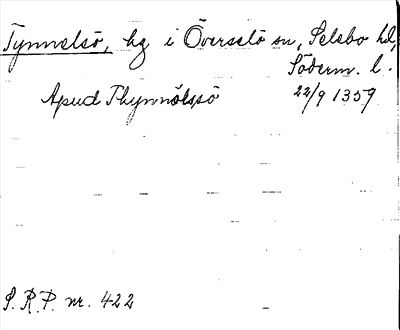 Tynnelsö, hg i Överselö sn, Selebo hd,
Söderm. l.
Apud Thynnölssö 22/9 1359
S.R.P. nr. 422